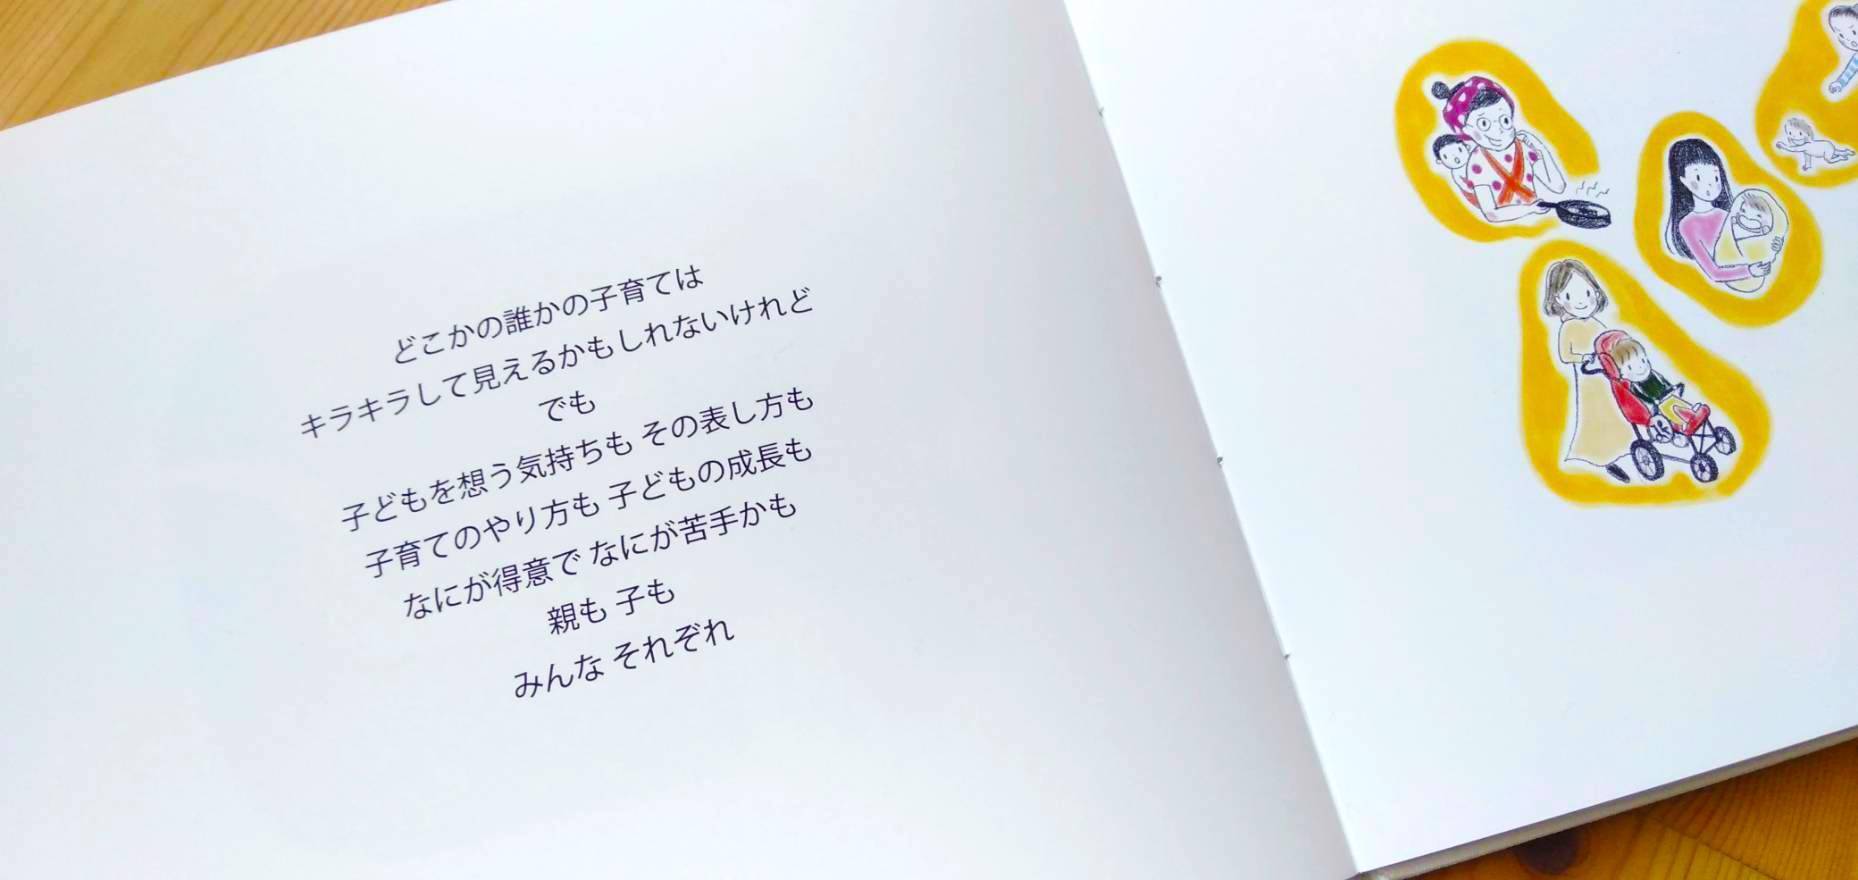 どこかの誰かの子育ては
キラキラして見えるかもしれないけれど
でも
子どもを想う気持ちも その表し方も
子育てのやり方も 子どもの成長も
なにが得意で なにが苦手かも
親も 子も
みんな それぞれ